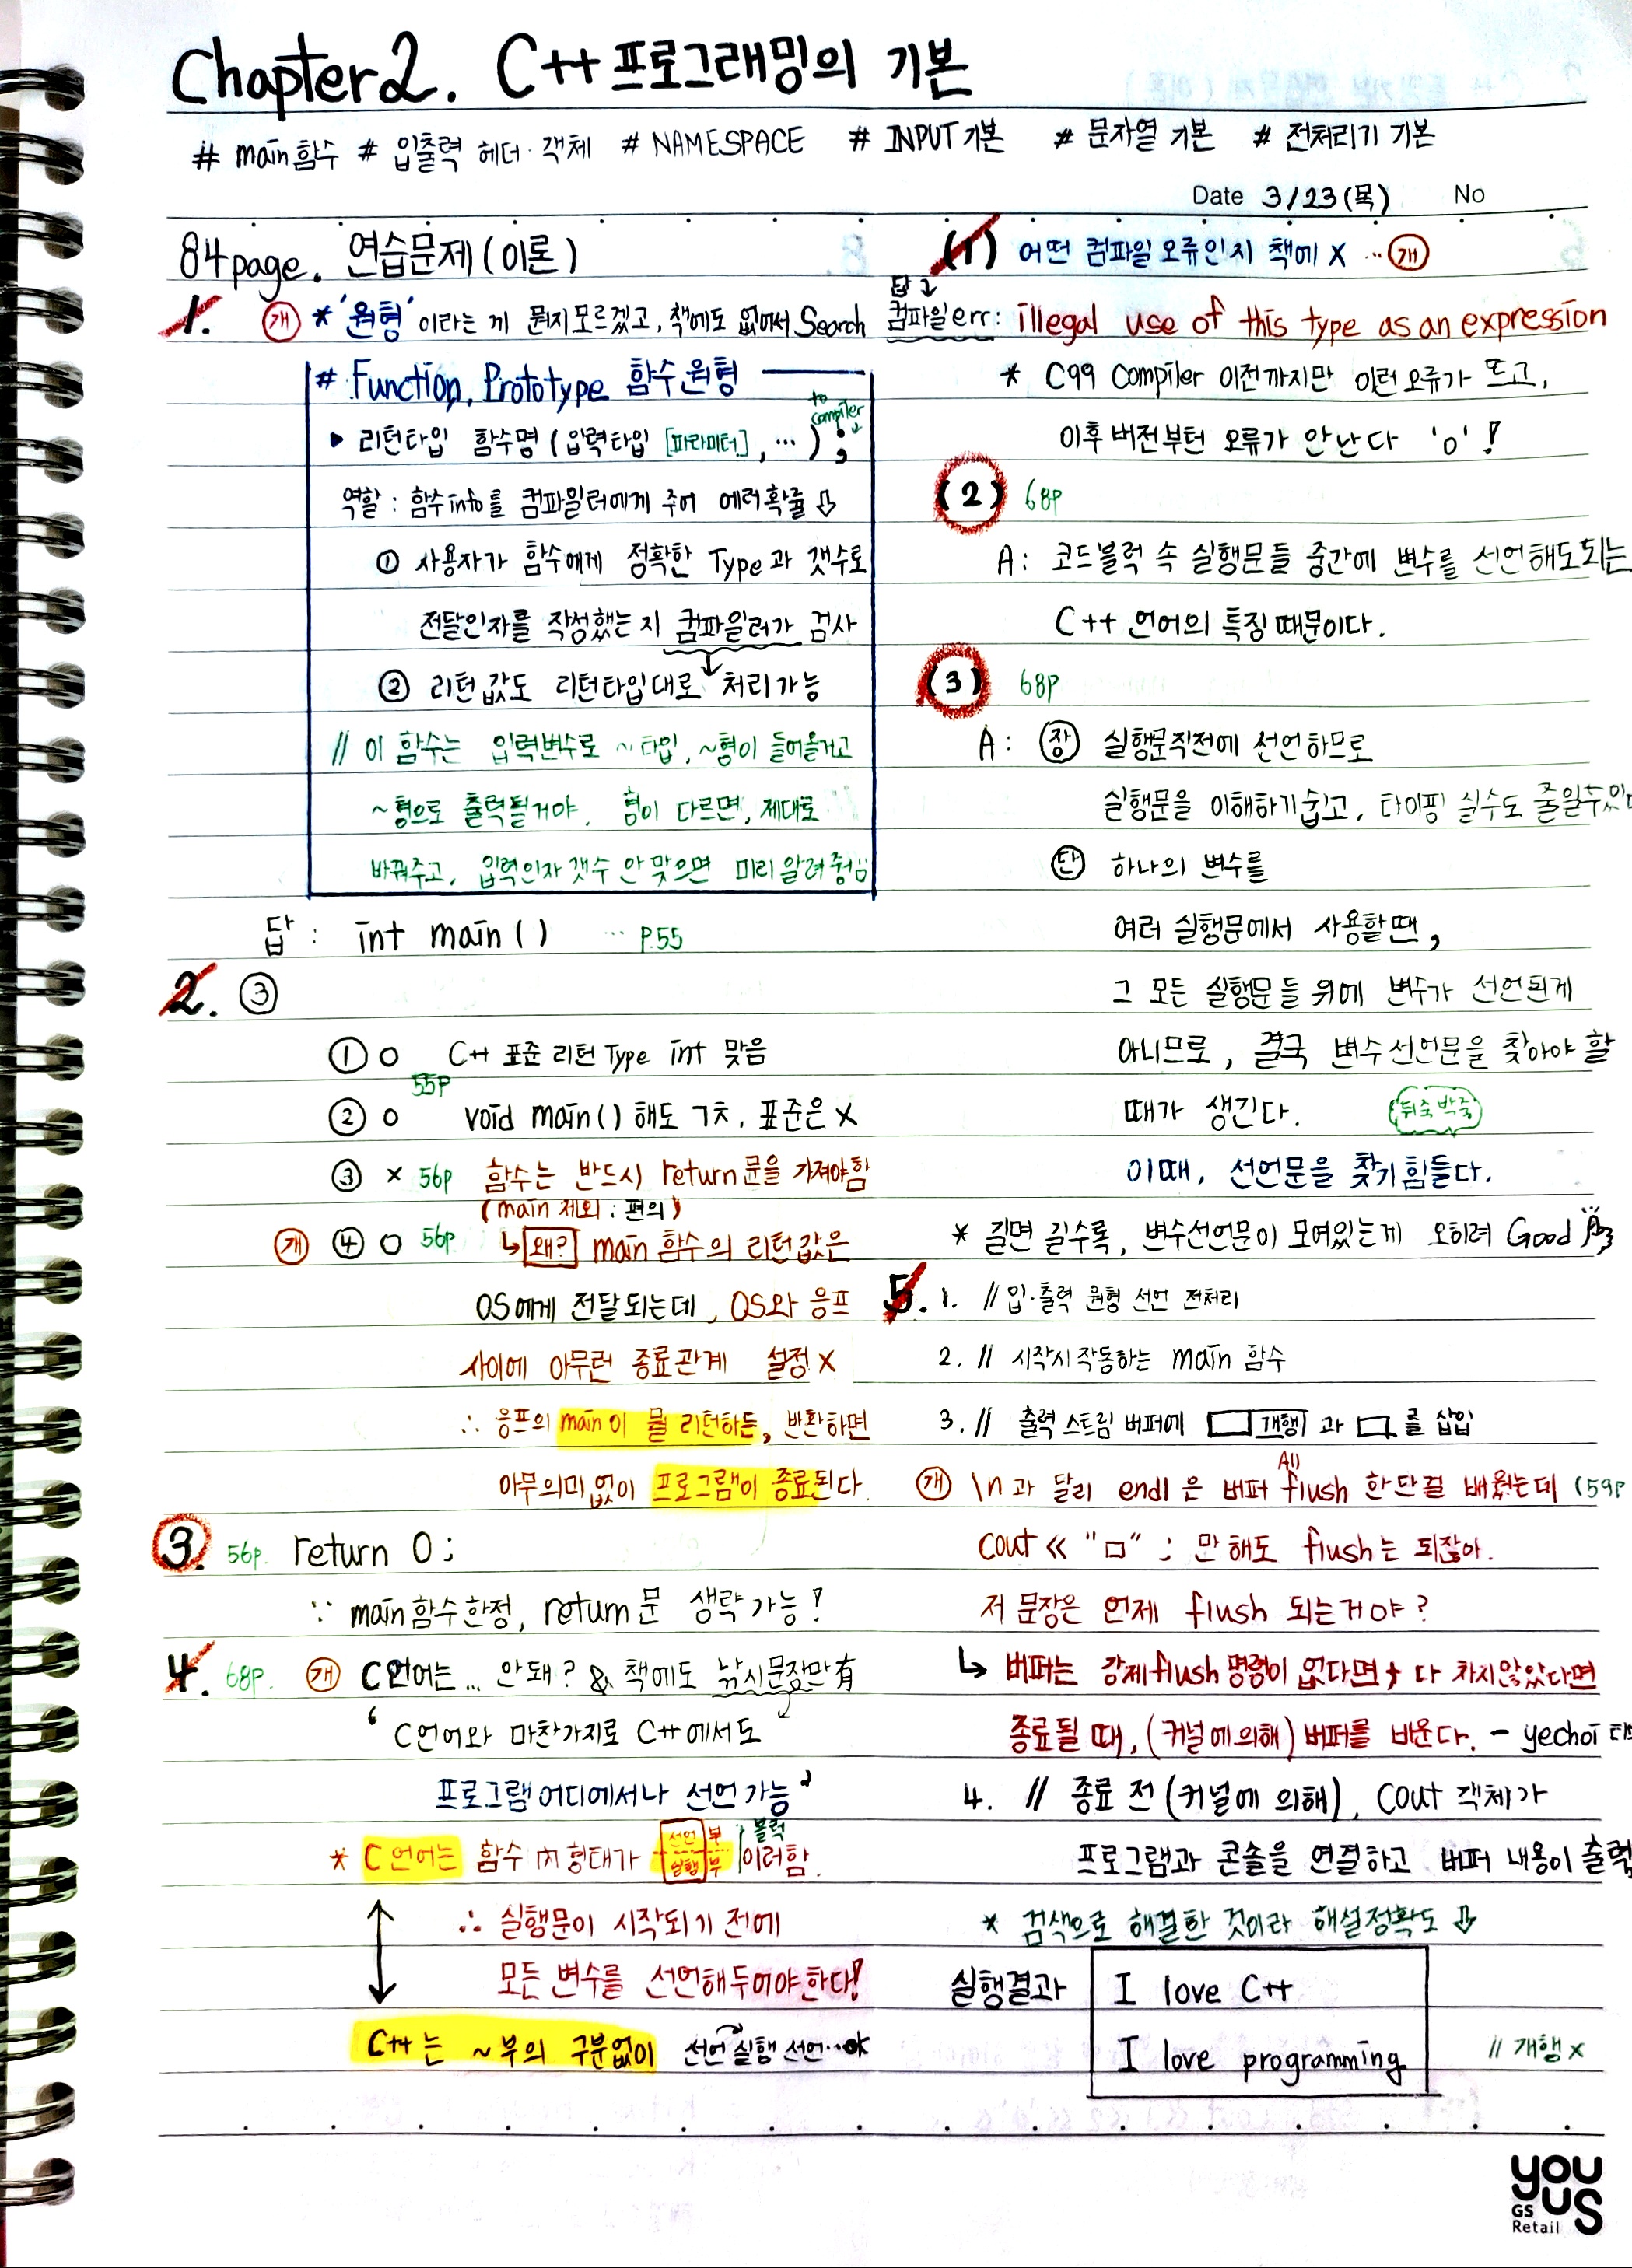 Chapter 2. C++ 프로그래밍의 기본
# main 함수 # 입출력 헤더·객체 # NAMESPACE # INPUT 기본 # 문자열 기본 # 전처리기 기본
Date 3/23(목) No
84page. 연습문제 (이론)
1. 개 * '원형' 이라는 게 뭔지모르겠고, 책에도 없어서 Search
# Function Prototype 함수원형
to compiler ↓
▶ 리턴타입 함수명 (입력타입 [파라미터], …) ;
역할 : 함수info를 컴파일러에게 주어 에러확률 ⇩
① 사용자가 함수에게 정확한 Type과 갯수로
전달인자를 작성했는지 컴파일러가 검사
② 리턴값도 리턴타입대로 처리가능
// 이 함수는 입력변수로 ~타입, ~형이 들어올거고
~형으로 출력될거야. 형이 다르면, 제대로
바꿔주고, 입력인자 갯수 안 맞으면 미리 알려줭
답 : int main() … P.55
2. ③
① O C++ 표준 리턴 Type int 맞음
55P
② O void main() 해도 ㄱㅊ, 표준은 X
③ × 56P 함수는 반드시 return문을 가져야함
(main 제외 : 편의)
개 ④ O 56P ↳ 왜? main 함수의 리턴값은
OS에게 전달되는데, OS와 응프
사이에 아무런 종료관계 설정 X
∴ 응프의 main이 뭘 리턴하든, 반환하면
아무의미없이 프로그램이 종료된다.
3. 56P. return 0;
∵ main함수한정, return문 생략 가능!
4. 68P. 개 C언어는... 안돼? & 책에도 낚시문장만 有
'C언어와 마찬가지로 C++에서도
프로그램어디에서나 선언 가능'
* C언어는 함수 內 형태가 선언부 실행부 블럭 이러함.
∴ 실행문이 시작되기 전에
모든 변수를 선언해두어야한다!
C++는 ~부의 구분없이 선언 실행 선언…ok
(1) 어떤 컴파일 오류인지 책에 X … 개
답 ↓
컴파일err: illegal use of this type as an expression
* C99 Compiler 이전까지만 이런 오류가 뜨고,
이후 버전부터 오류가 안난다 'o'!
(2) 68P
A : 코드블럭 속 실행문들 중간에 변수를 선언해도되는
C++ 언어의 특징때문이다.
(3) 68P
A : 장 실행문직전에 선언하므로
실행문을 이해하기쉽고, 타이핑 실수도 줄일수있
단 하나의 변수를
여러 실행문에서 사용할땐,
그 모든 실행문들 위에 변수가 선언된게
아니므로, 결국 변수선언문을 찾아야 할
때가 생긴다. 뒤죽박죽
이때, 선언문을 찾기힘들다.
* 길면 길수록, 변수선언문이 모여있는게 오히려 Good
5. 1. // 입·출력 원형 선언 전처리
2. // 시작시작동하는 main 함수
3. // 출력 스트림 버퍼에 □ 개행 과 □를 삽입
개 \n과 달리 endl은 버퍼 All flush 한단걸 배웠는데 (59P
cout << "□" ; 만해도 flush는 되잖아.
저 문장은 언제 flush 되는거야?
↳ 버퍼는 강제flush 명령이 없다면, 다 차지않았다면
종료될 때, (커널에의해) 버퍼를 비운다. - yechoi
4. // 종료 전 (커널에 의해), cout 객체가
프로그램과 콘솔을 연결하고 버퍼 내용이 출력
* 검색으로 해결한 것이라 해설정확도 ⇩
실행결과
I love C++
I love programming
// 개행 X
YOU US
GS Retail